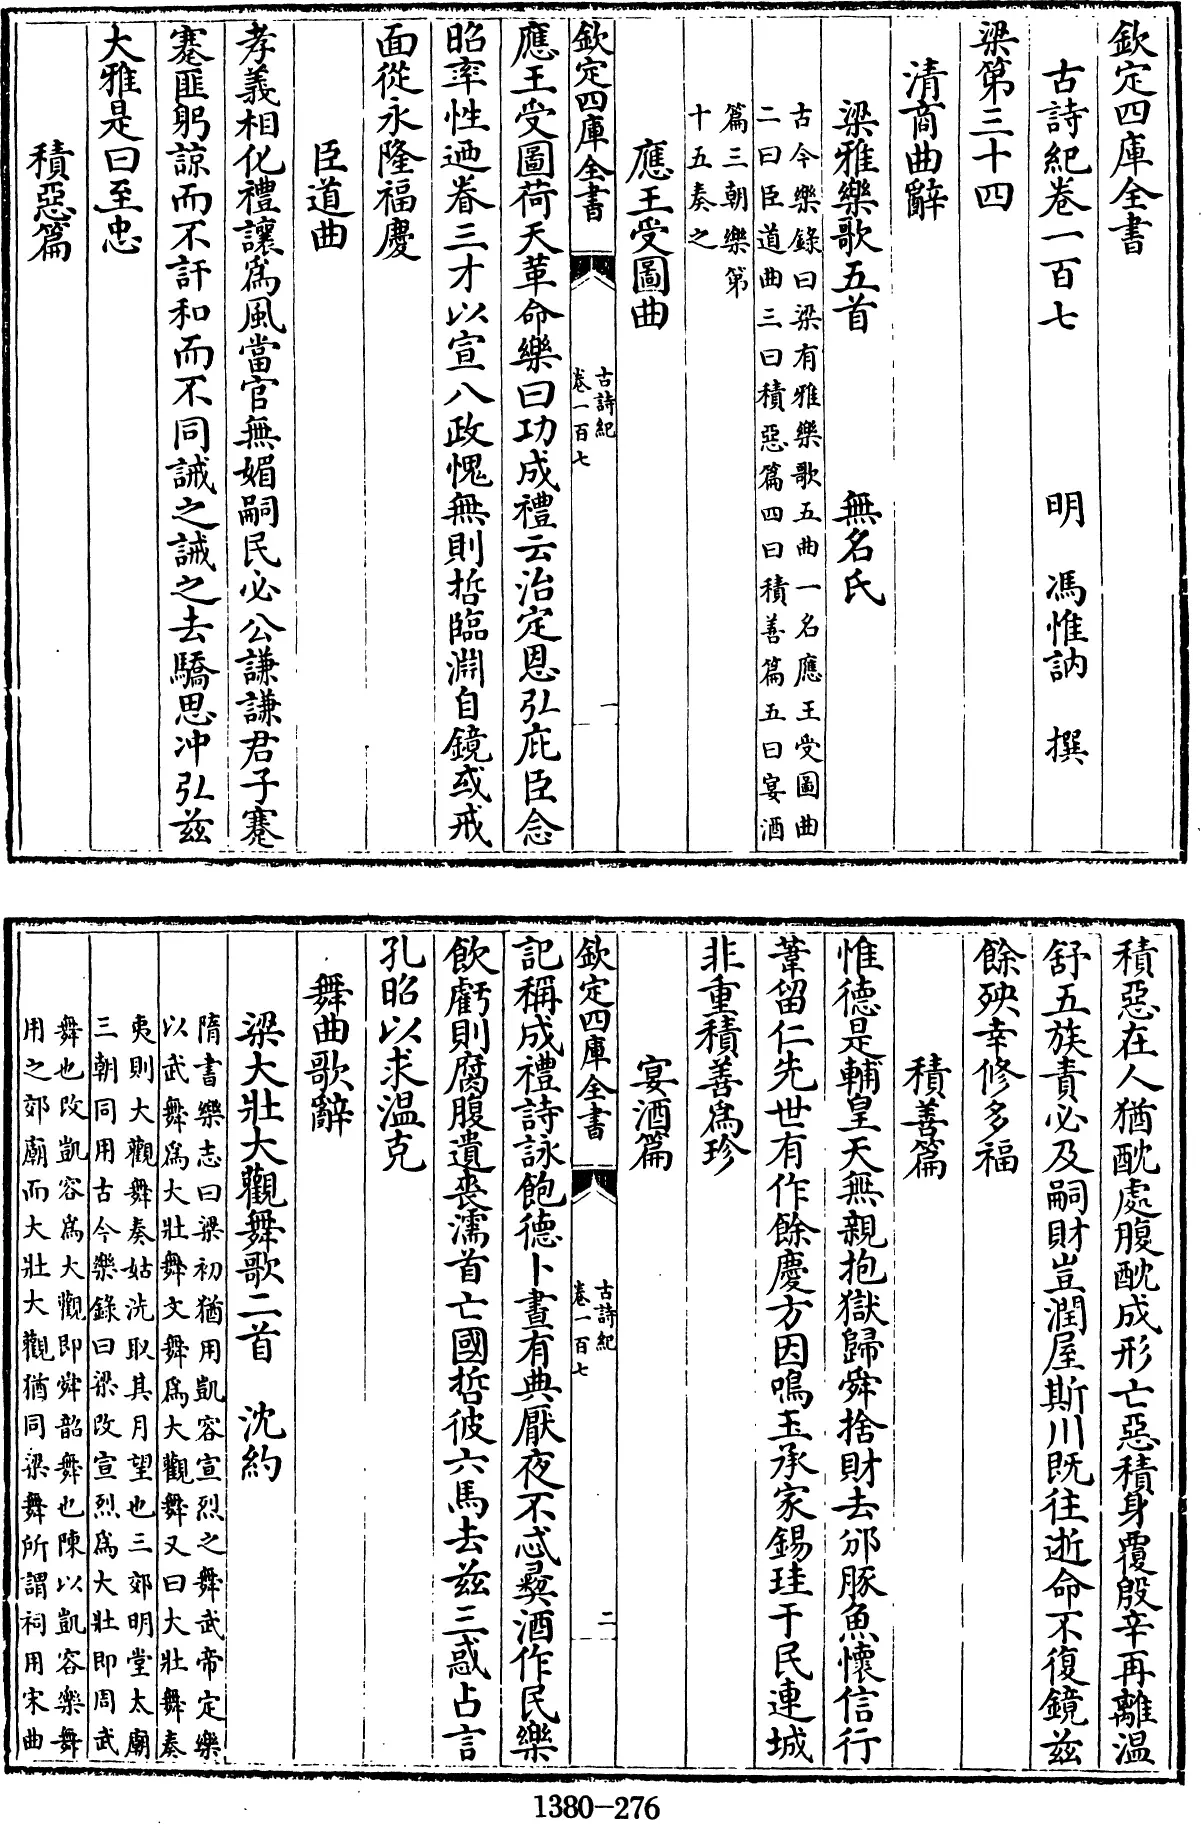 欽定四庫全書
古詩紀卷一百七　明　馮惟訥　撰
梁第三十四
清商曲辭
梁雅樂歌五首　無名氏
古今樂錄曰梁有雅樂歌五曲一名應王受圖曲
二曰臣道曲三曰積惡篇四曰積善篇五曰宴酒
篇三朝樂第
十五奏之
應王受圖曲
應王受圖荷天革命樂曰功成禮云治定恩弘庇臣念
昭率性迺眷三才以宣八政愧無則哲臨淵自鏡或戒
面從永隆福慶
臣道曲
孝義相化禮讓爲風當官無媚嗣民必公謙謙君子蹇
蹇匪躬諒而不訐和而不同誡之誡之去驕思冲弘茲
大雅是曰至忠
積惡篇
欽定四庫全書
古詩紀
卷一百七
一
積惡在人猶酖處腹酖成形亡惡積身覆殷辛再離温
舒五族責必及嗣財豈潤屋斯川既往逝命不復鏡茲
餘殃幸修多福
積善篇
惟德是輔皇天無親抱獄歸舜捨財去邠豚魚懷信行
葦留仁先世有作餘慶方因鳴玉承家錫珪于民連城
非重積善爲珍
宴酒篇
記稱成禮詩詠飽德卜晝有典厭夜不忒彞酒作民樂
飲虧則腐腹遺喪濡首亡國哲彼六馬去茲三惑占言
孔昭以求温克
舞曲歌辭
梁大壯大觀舞歌二首　沈約
隋書樂志曰梁初猶用凱容宣烈之舞武帝定樂
以武舞爲大壯舞文舞爲大觀舞又曰大壯舞奏
夷則大觀舞奏姑洗取其月望也三郊明堂太廟
三朝同用古今樂錄曰梁改宣烈爲大壯即周武
舞也改凱容爲大觀即舜韶舞也陳以凱容樂舞
用之郊廟而大壯大觀猶同梁舞所謂祠用宋曲
欽定四庫全書
古詩紀
卷一百七
二
1380-276